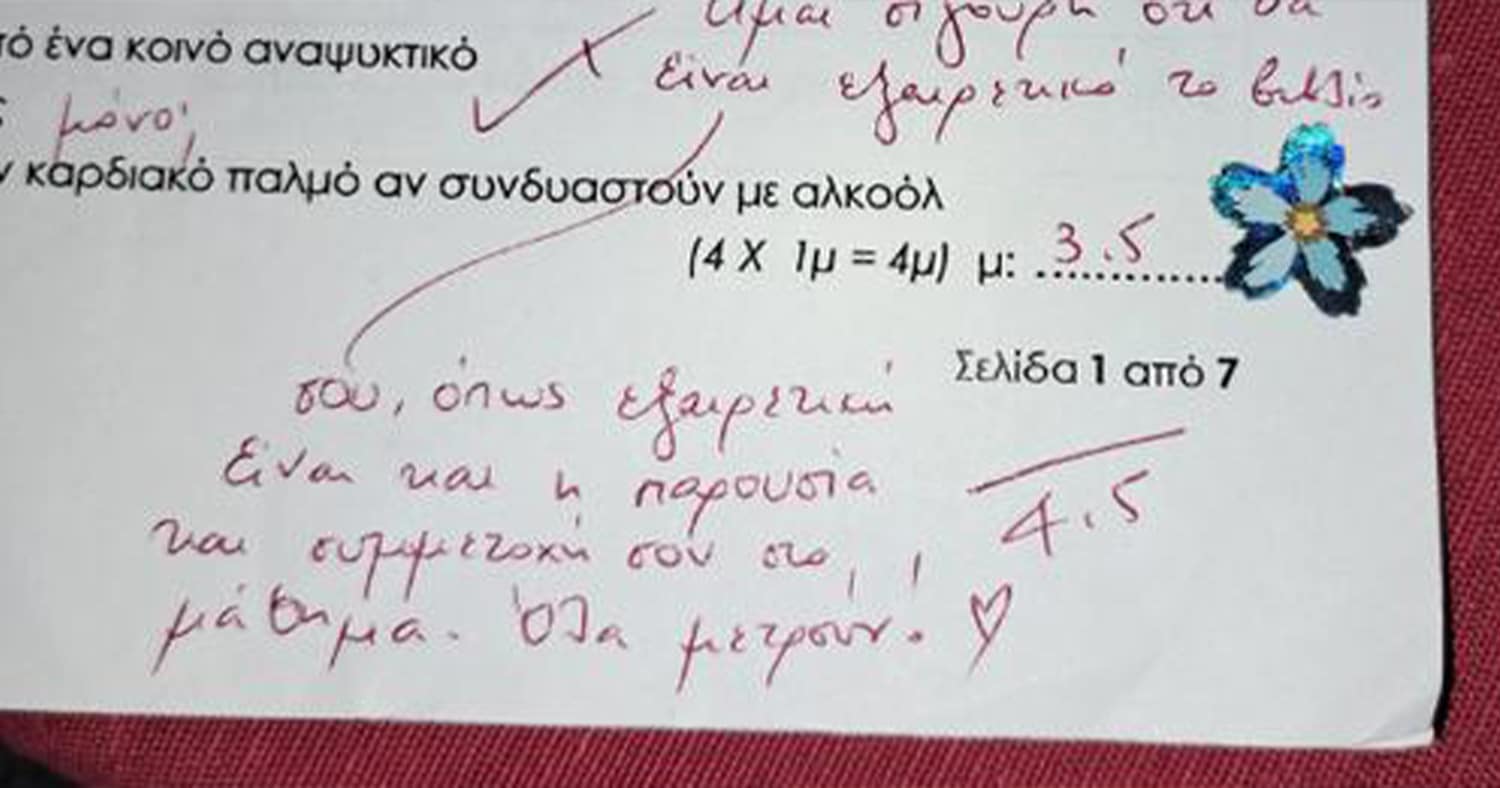 είμαι σίγουρη ότι θα
τό ένα κοινό αναψυκτικό
είναι εξαιρετικό το βιβλίο
ς μόνο;
ν καρδιακό παλμό αν συνδυαστούν με αλκοόλ
(4 X 1μ = 4μ) μ: 3.5
Σελίδα 1 από 7
σου, όπως εξαιρετική
είναι και η παρουσία
4.5
και συμμετοχή σου στο
μάθημα. Όλα μετρούν! ♡